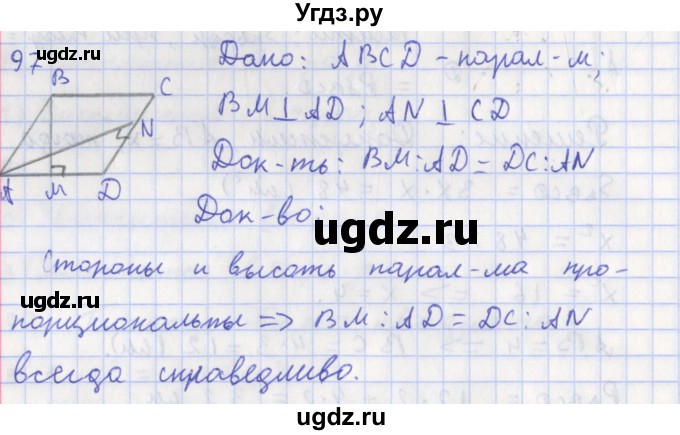 Угдз.ру
97
Дано: ABCD - парал-м;
BM ⊥ AD ; AN ⊥ CD
Док-ть: BM : AD = DC : AN
Док-во:
B
C
N
A
M
D
Стороны и высоты парал-ма про-
порциональны => BM : AD = DC : AN
всегда справедливо.
ugdz.ru
ugdz.ru
ugdz.ru
ugdz.ru
ugdz.ru
ugdz.ru